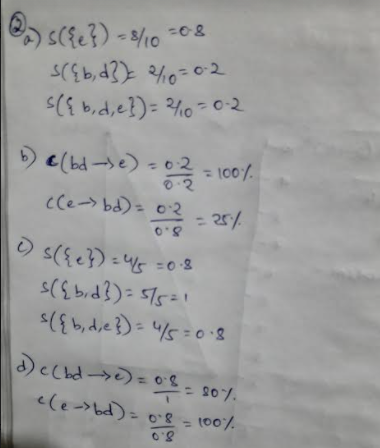 ② a) s({e}) = 8/10 = 0.8
s({b,d}) = 2/10 = 0.2
s({b,d,e}) = 2/10 = 0.2
b) c(bd → e) = 0.2/0.2 = 100%
c(e → bd) = 0.2/0.8 = 25%
c) s({e}) = 4/5 = 0.8
s({b,d}) = 5/5 = 1
s({b,d,e}) = 4/5 = 0.8
d) c(bd → e) = 0.8/1 = 80%
c(e → bd) = 0.8/0.8 = 100%